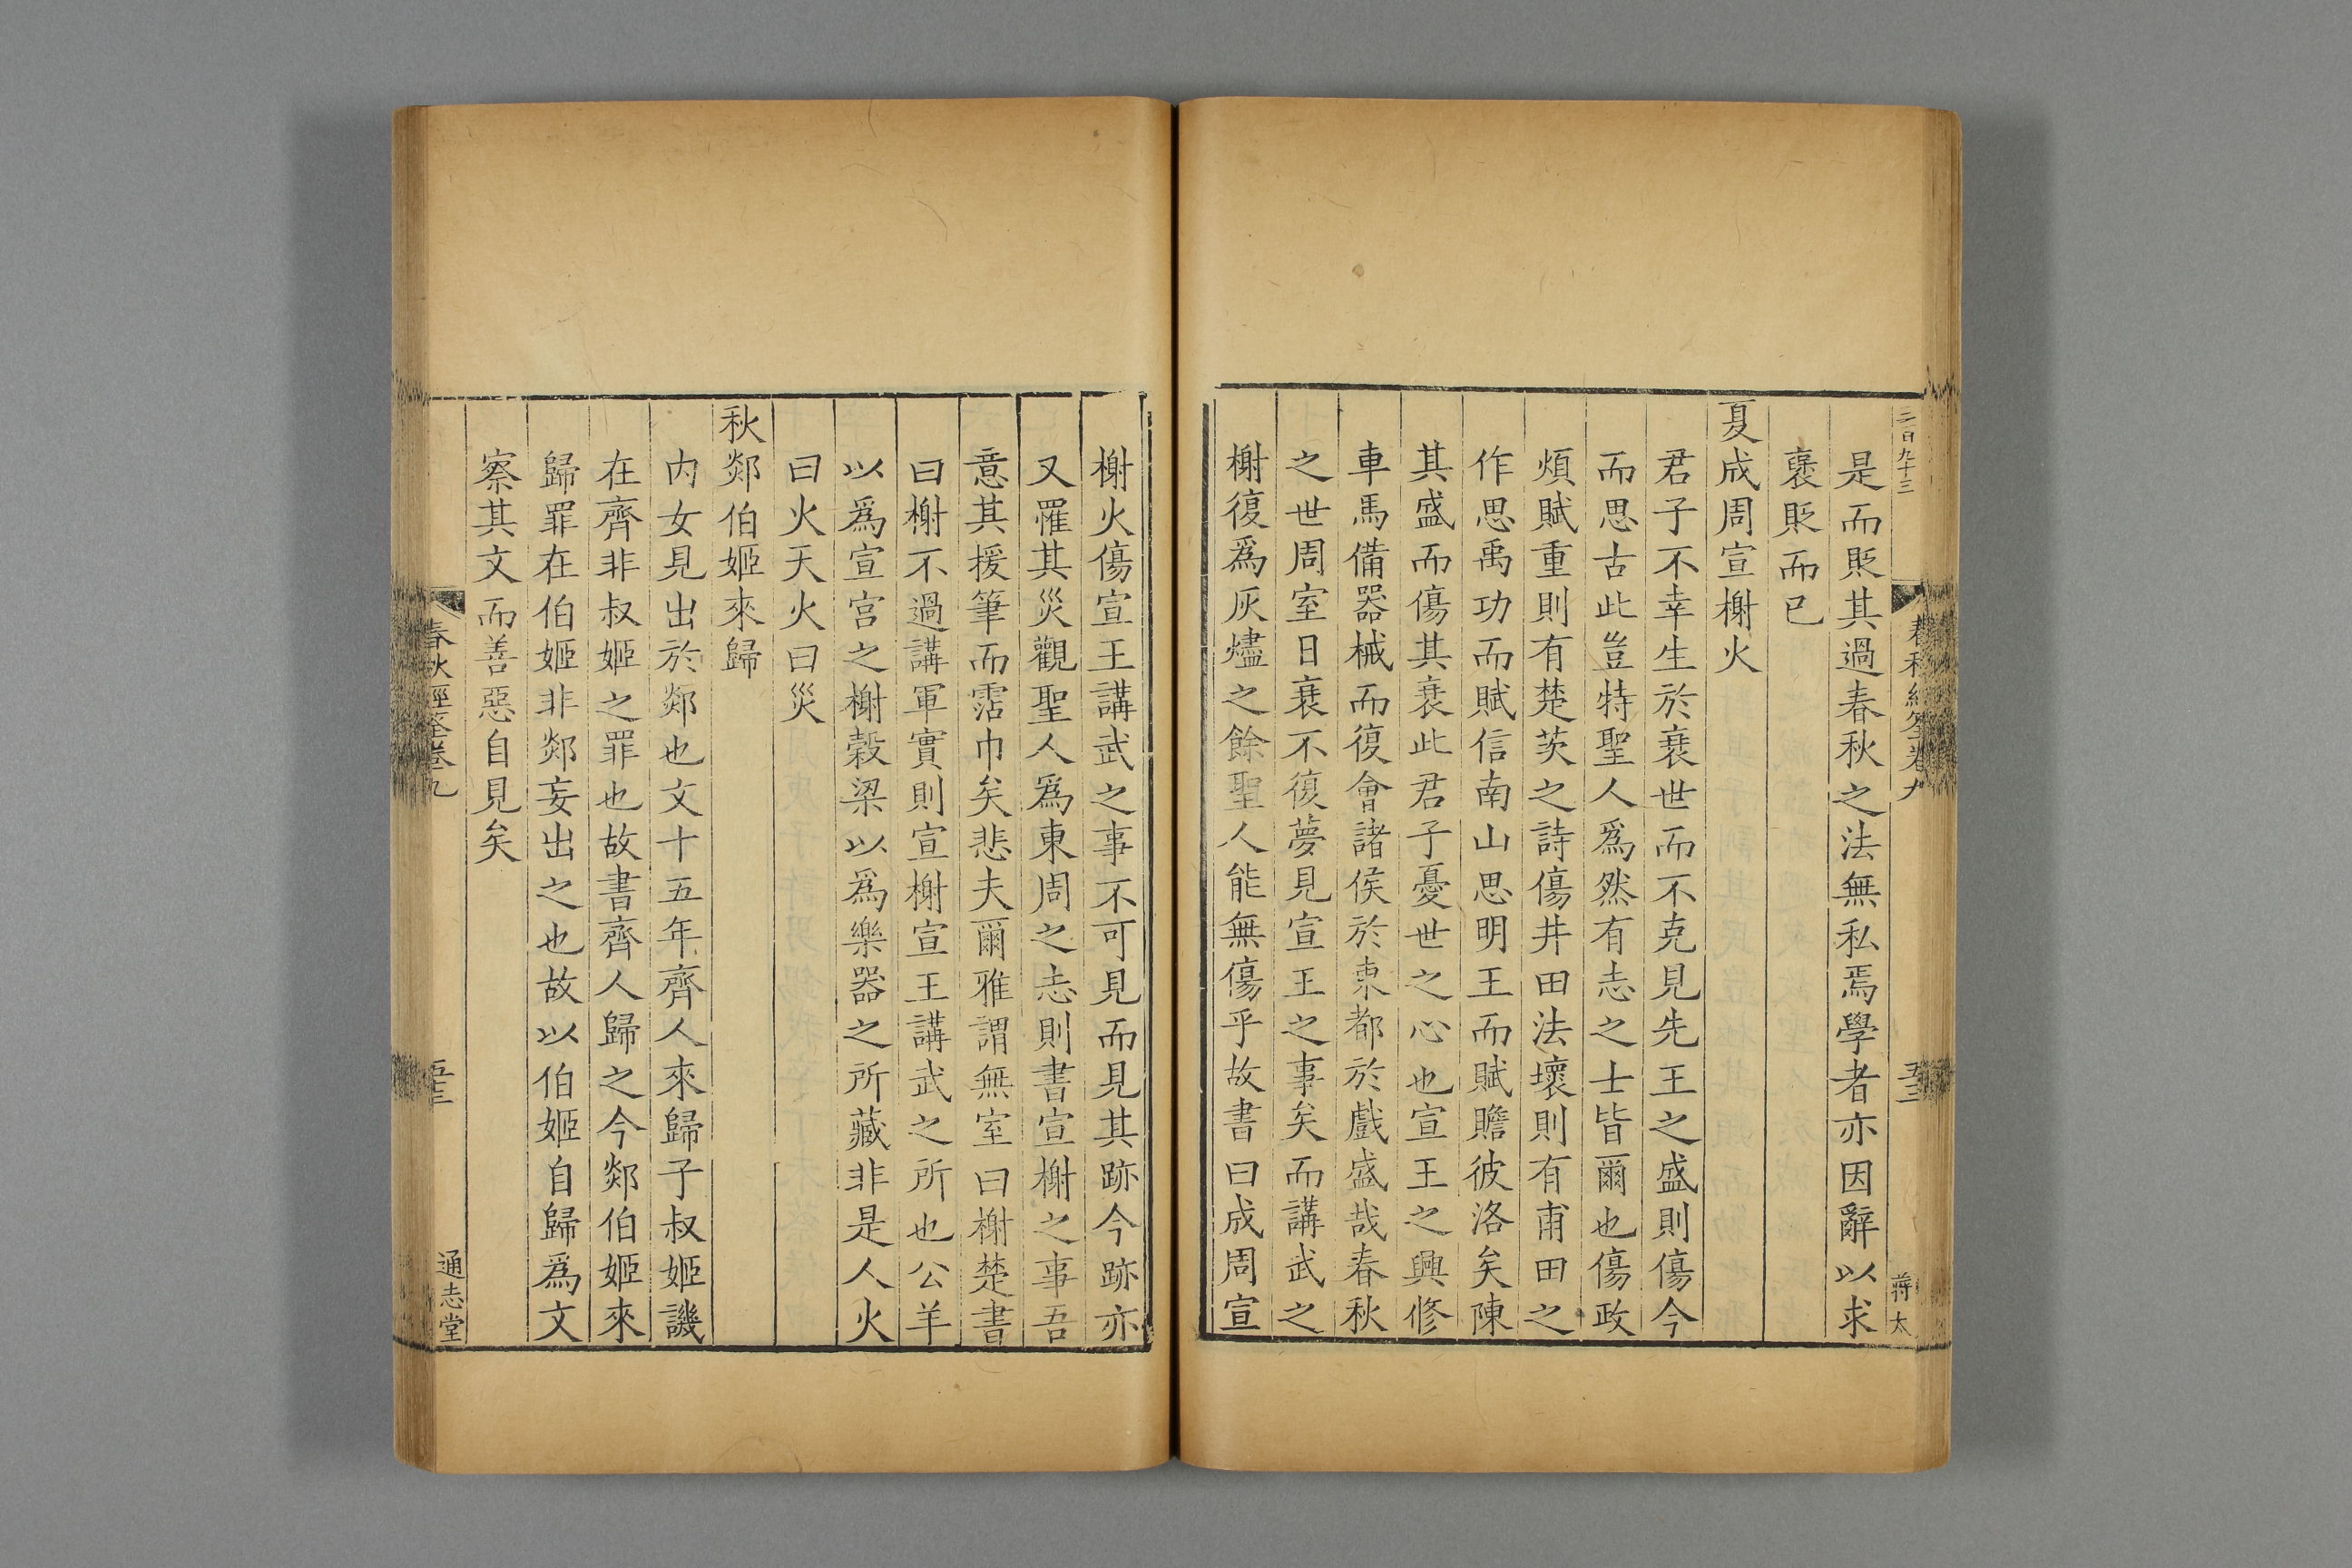 三百九十三
春秋經筌卷九
五十三
蒋太
是而貶其過春秋之法無私焉學者亦因辭以求
褒貶而已
夏成周宣榭火
君子不幸生於衰世而不克見先王之盛則傷今
而思古此豈特聖人為然有志之士皆爾也傷政
煩賦重則有楚茨之詩傷井田法壞則有甫田之
作思禹功而賦信南山思明王而賦瞻彼洛矣陳
其盛而傷其衰此君子憂世之心也宣王之興修
車馬備器械而復會諸侯於東都於戲盛哉春秋
之世周室日衰不復夢見宣王之事矣而講武之
榭復為灰燼之餘聖人能無傷乎故書曰成周宣
榭火傷宣王講武之事不可見而見其跡今跡亦
又罹其災觀聖人為東周之志則書宣榭之事吾
意其援筆而霑巾矣悲夫爾雅謂無室曰榭楚書
曰榭不過講軍實則宣榭宣王講武之所也公羊
以為宣宮之榭穀梁以為樂器之所藏非是人火
曰火天火曰災
秋郯伯姬來歸
内女見出於郯也文十五年齊人來歸子叔姬譏
在齊非叔姬之罪也故書齊人歸之今郯伯姬來
歸罪在伯姬非郯妄出之也故以伯姬自歸為文
察其文而善惡自見矣
春秋經筌卷九
五十三
通志堂